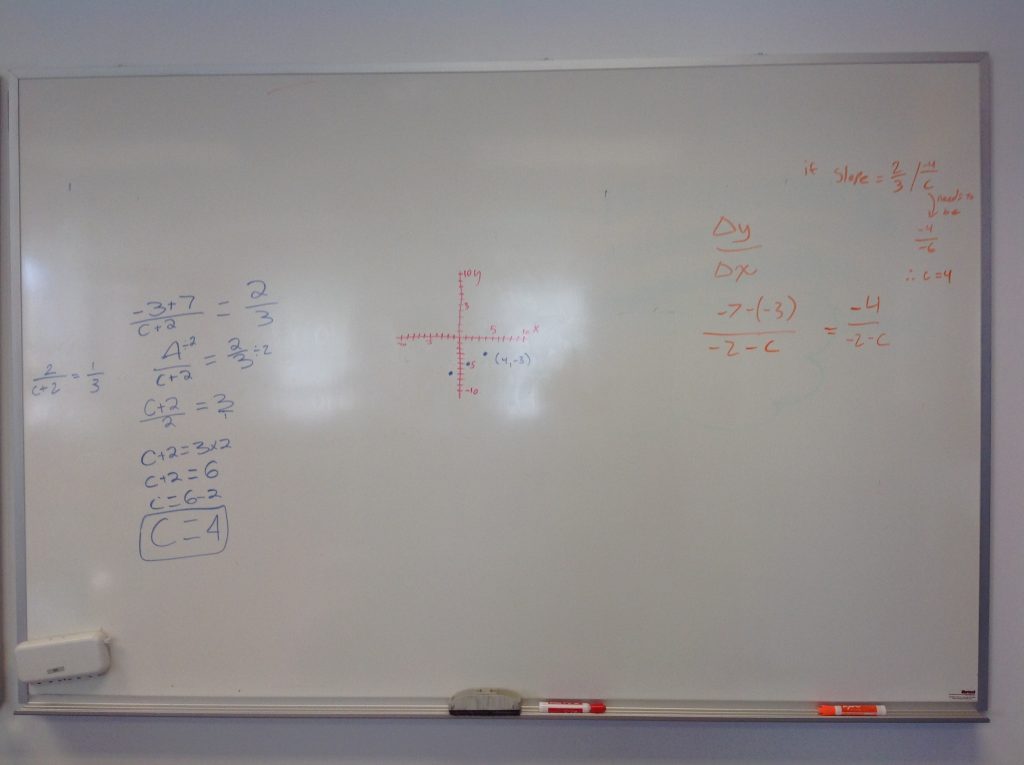 -3+7 / c+2 = 2/3
4÷2 / c+2 = 2÷2 / 3
2 / c+2 = 1/3
c+2 / 2 = 3/1
c+2=3x2
c+2=6
c=6-2
C=4
10 y
5
5 x
5
(4,-3)
-5
-10
if slope = 2/3 / -4/c
needs to be
-4/-6
∴ c=4
Δy / Δx
-7-(-3) / -2-c = -4 / -2-c